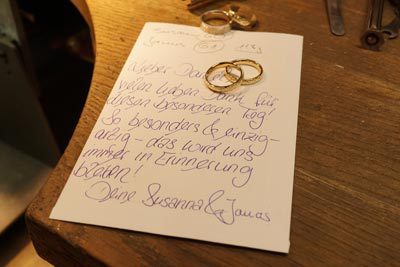 Susanna
Jonas 61
Lieber Dan
vielen lieben Dank für
diesen besonderen Tag!
So besonders & einzig-
artig – das wird uns
immer in Erinnerung
bleiben!
Deine Susanna & Jonas